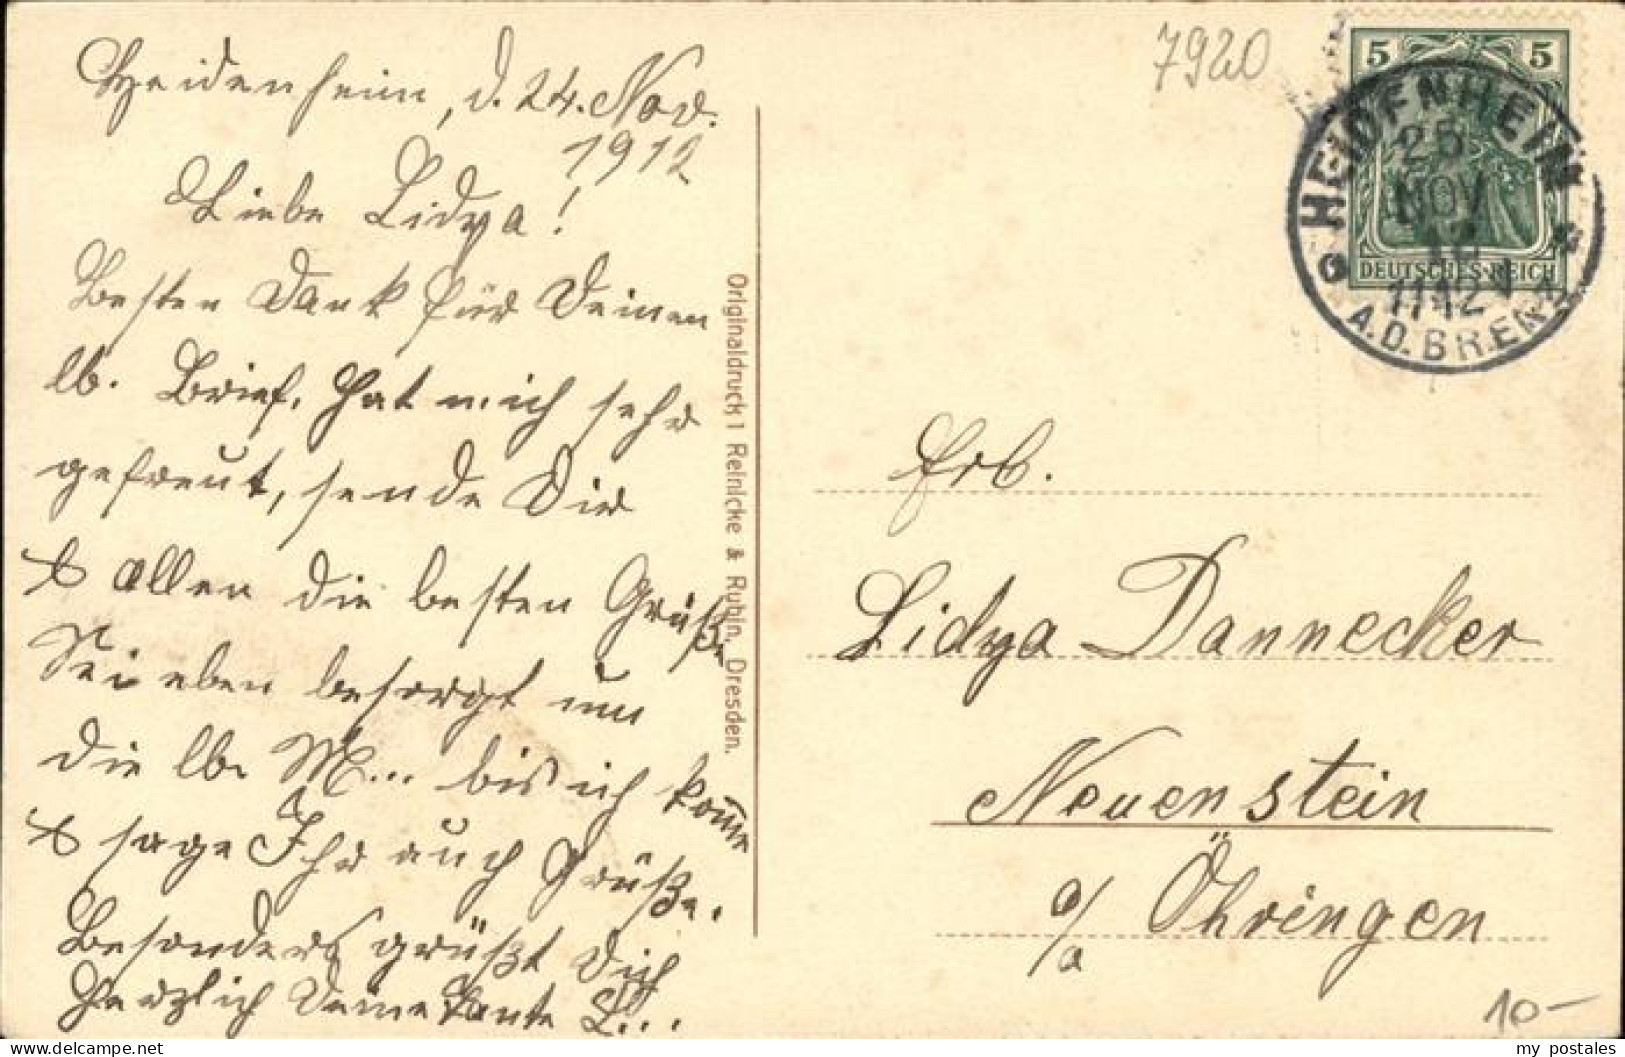 Heidenheim, d. 24. Nov.
1912
Liebe Lidya!
Besten Dank für Deinen
lb. Brief, hat mich sehr
gefreut, sende Dir
& allen die besten Grüße
Sei eben besorgt um
die lb. M... bis ich komme
& sage Ihr auch Grüße.
Besonders grüßt Dich
herzlich Deine Tante L...
Originaldruck 1 Reinicke & Rubin, Dresden.
7920
5 5
DEUTSCHES REICH
HEIDENHEIM
25
NOV
12
11-12 V
A.D. BRENZ
Frl.
Lidya Dannecker
Neuenstein
o/a Öhringen
10-
my postales